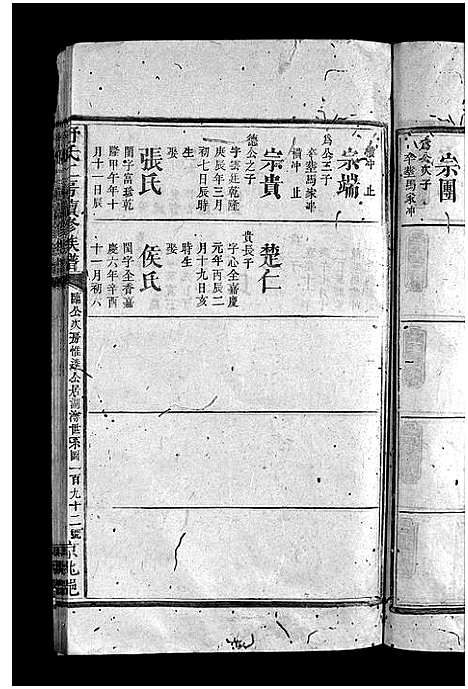 宗團
為公次子
卒葬馬家冲
宗端
為公三子
卒葬馬家冲
續冲 止
宗貴
德公之子
字雲廷乾隆
庚辰年三月
初七日辰時
生
娶
張氏
閨字富珍乾
隆甲午年十
月十一日辰
楚仁
貴長子
字心全嘉慶
元年丙辰二
月十九日亥
時生
娶
侯氏
閨字全香嘉
慶六年辛酉
十一月初八
氏 房 修族譜
臨公次房惟遠公居湖濱世系圖
一百九十二號
京兆